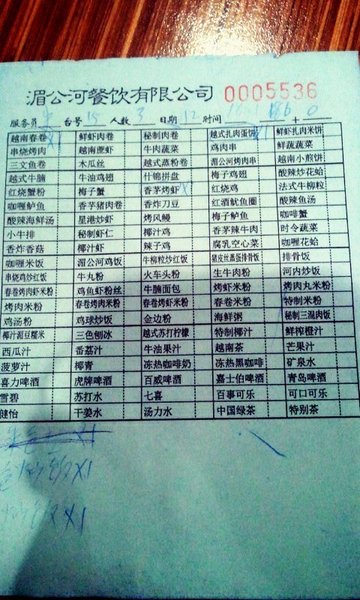 湄公河餐饮有限公司 0005536
服务员 台号 15 人数 3 日期 12 时间
越南春卷 X1 鲜虾肉卷 秘制肉卷 越式扎肉蛋 鲜虾扎肉米饼
串烧烤肉 越南虎虾 牛肉蔬菜 鸡肉串 鲜蔬蔬菜
三文鱼卷 木瓜丝 越式蒸粉卷 湄公河烤肉串 越南小煎饼
越式牛腩 牛油鸡翅 什锦拼盘 梅子鸡翅 酸辣炒花蛤
红烧蟹粉 梅子蟹 香茅烤虾 红烧鸡 法式牛柳粒
咖喱鲈鱼 香芋猪肉卷 香炸刀豆 红酒鱿鱼圈 酸辣鱼汤
酸辣海鲜汤 星港炒虾 烤凤鳗 梅子鲈鱼 咖啡蟹
小牛排 秘制虾仁 椰汁鸡 香茅辣牛肉 时令蔬菜
香炸香菇 椰汁虾 辣子鸡 腐乳空心菜 咖喱花蛤
咖喱米饭 湄公河鸡饭 牛柳粒炒红饭 排骨饭
串烧鸡炒红饭 牛丸粉 火车头粉 生牛肉粉 河内炒饭
春卷烤肉虾米粉 鸡鱼虾粉丝 牛腩面包 烤虾米粉 烤肉丸米粉
烤肉米粉 春卷烤肉米粉 春卷烤虾米粉 春卷米粉 特制米粉
鸡汤粉 鸡球炒饭 金边粉 海鲜粥 秘制三温肉饭
椰汁源豆糯米 三色刨冰 越式苏打柠檬 特制椰汁 鲜榨橙汁
西瓜汁 番茄汁 牛油果汁 越南茶 芒果汁
菠萝汁 椰青 冻热咖啡奶 冻热黑咖啡 矿泉水
喜力啤酒 虎牌啤酒 百威啤酒 嘉士伯啤酒 青岛啤酒
雪碧 苏打水 七喜 百事可乐 可口可乐
健怡 干姜水 汤力水 中国绿茶 特别茶
X1
X1
X1